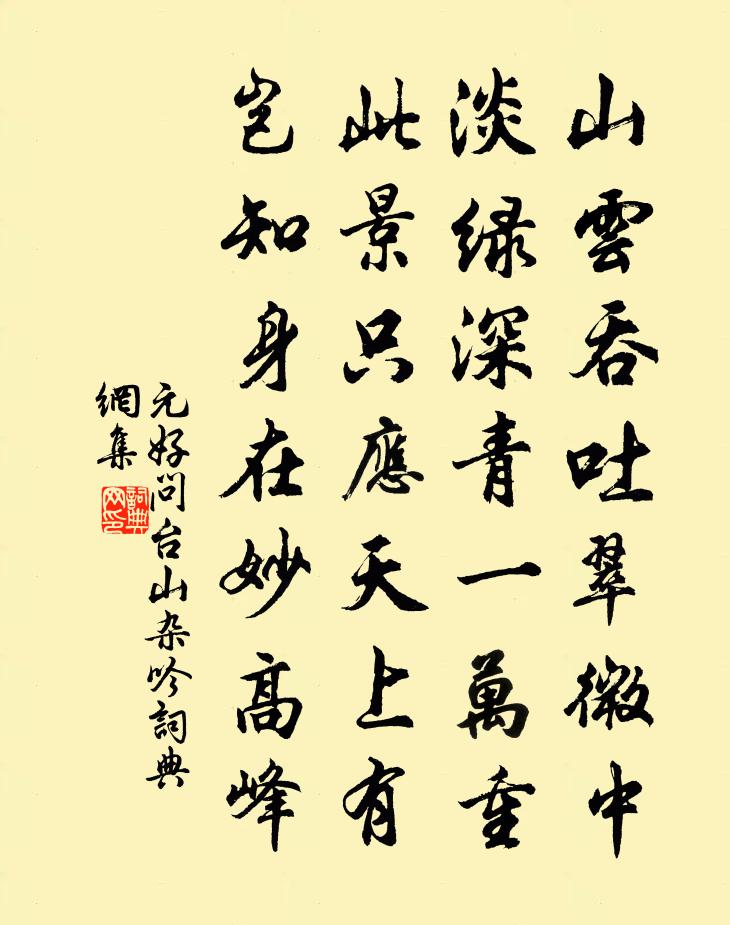 山雲吞吐翠微中
淡緑深青一萬重
此景只應天上有
岂知身在妙高峰
元好问台山杂吟詞典
網集
詞典
网印